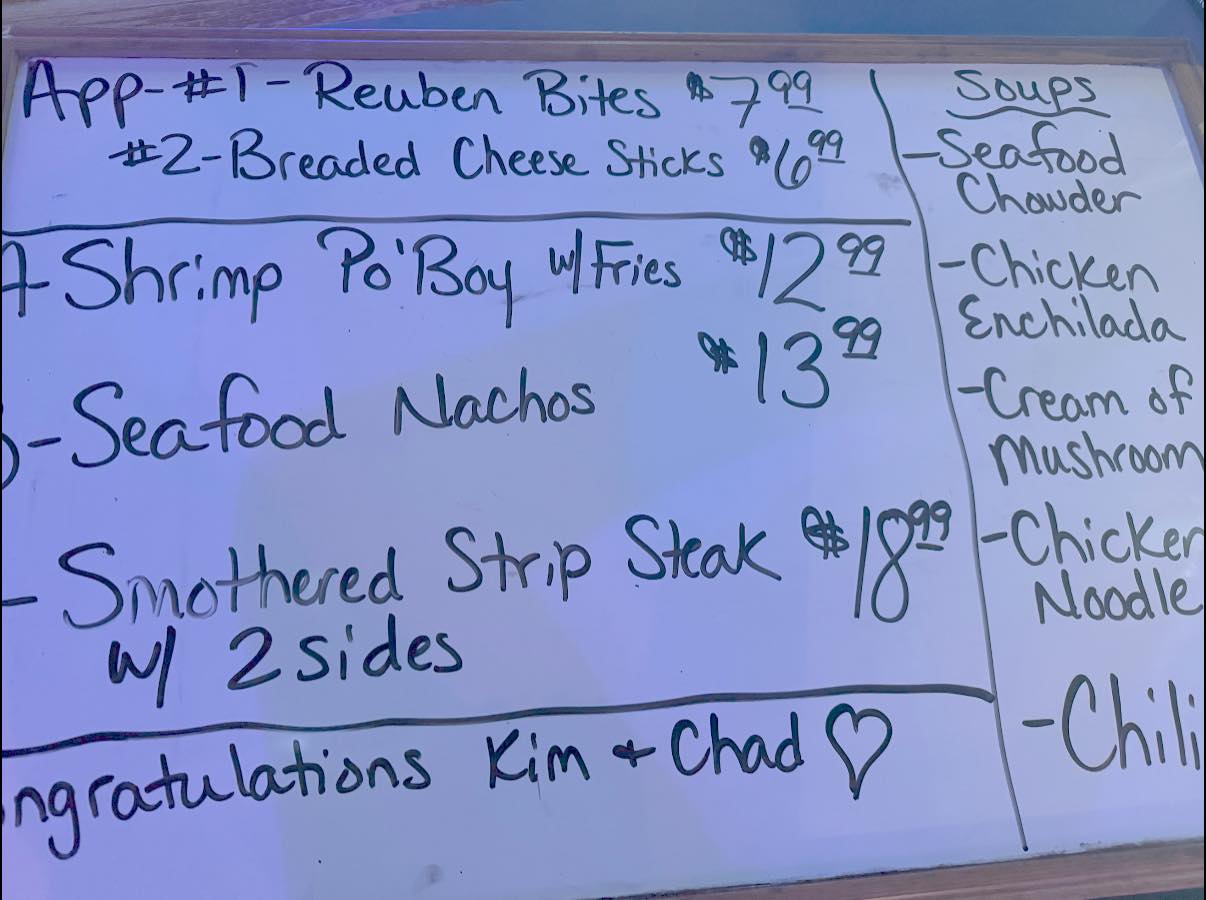 App-#1-Reuben Bites $7.99
#2-Breaded Cheese Sticks $6.99
-Shrimp Po'Boy w/Fries $12.99
-Seafood Nachos $13.99
-Smothered Strip Steak $18.99
w/ 2 sides
ngratulations Kim + Chad ♡
Soups
-Seafood
Chowder
-Chicken
Enchilada
-Cream of
Mushroom
-Chicken
Noodle
-Chili